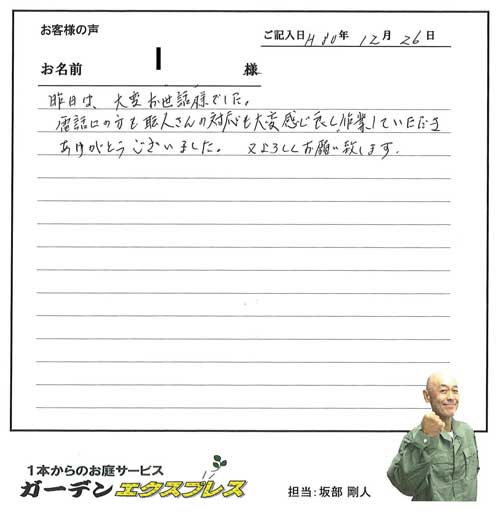 お客様の声
ご記入日 H30年 12月 26日
お名前 様
昨日は、大変お世話様でした。
電話口の方も職人さんの対応も大変感じ良し作業していただき
ありがとうございました。 又よろしくお願い致します。
1本からのお庭サービス
ガーデンエクスプレス
担当:坂部 剛人